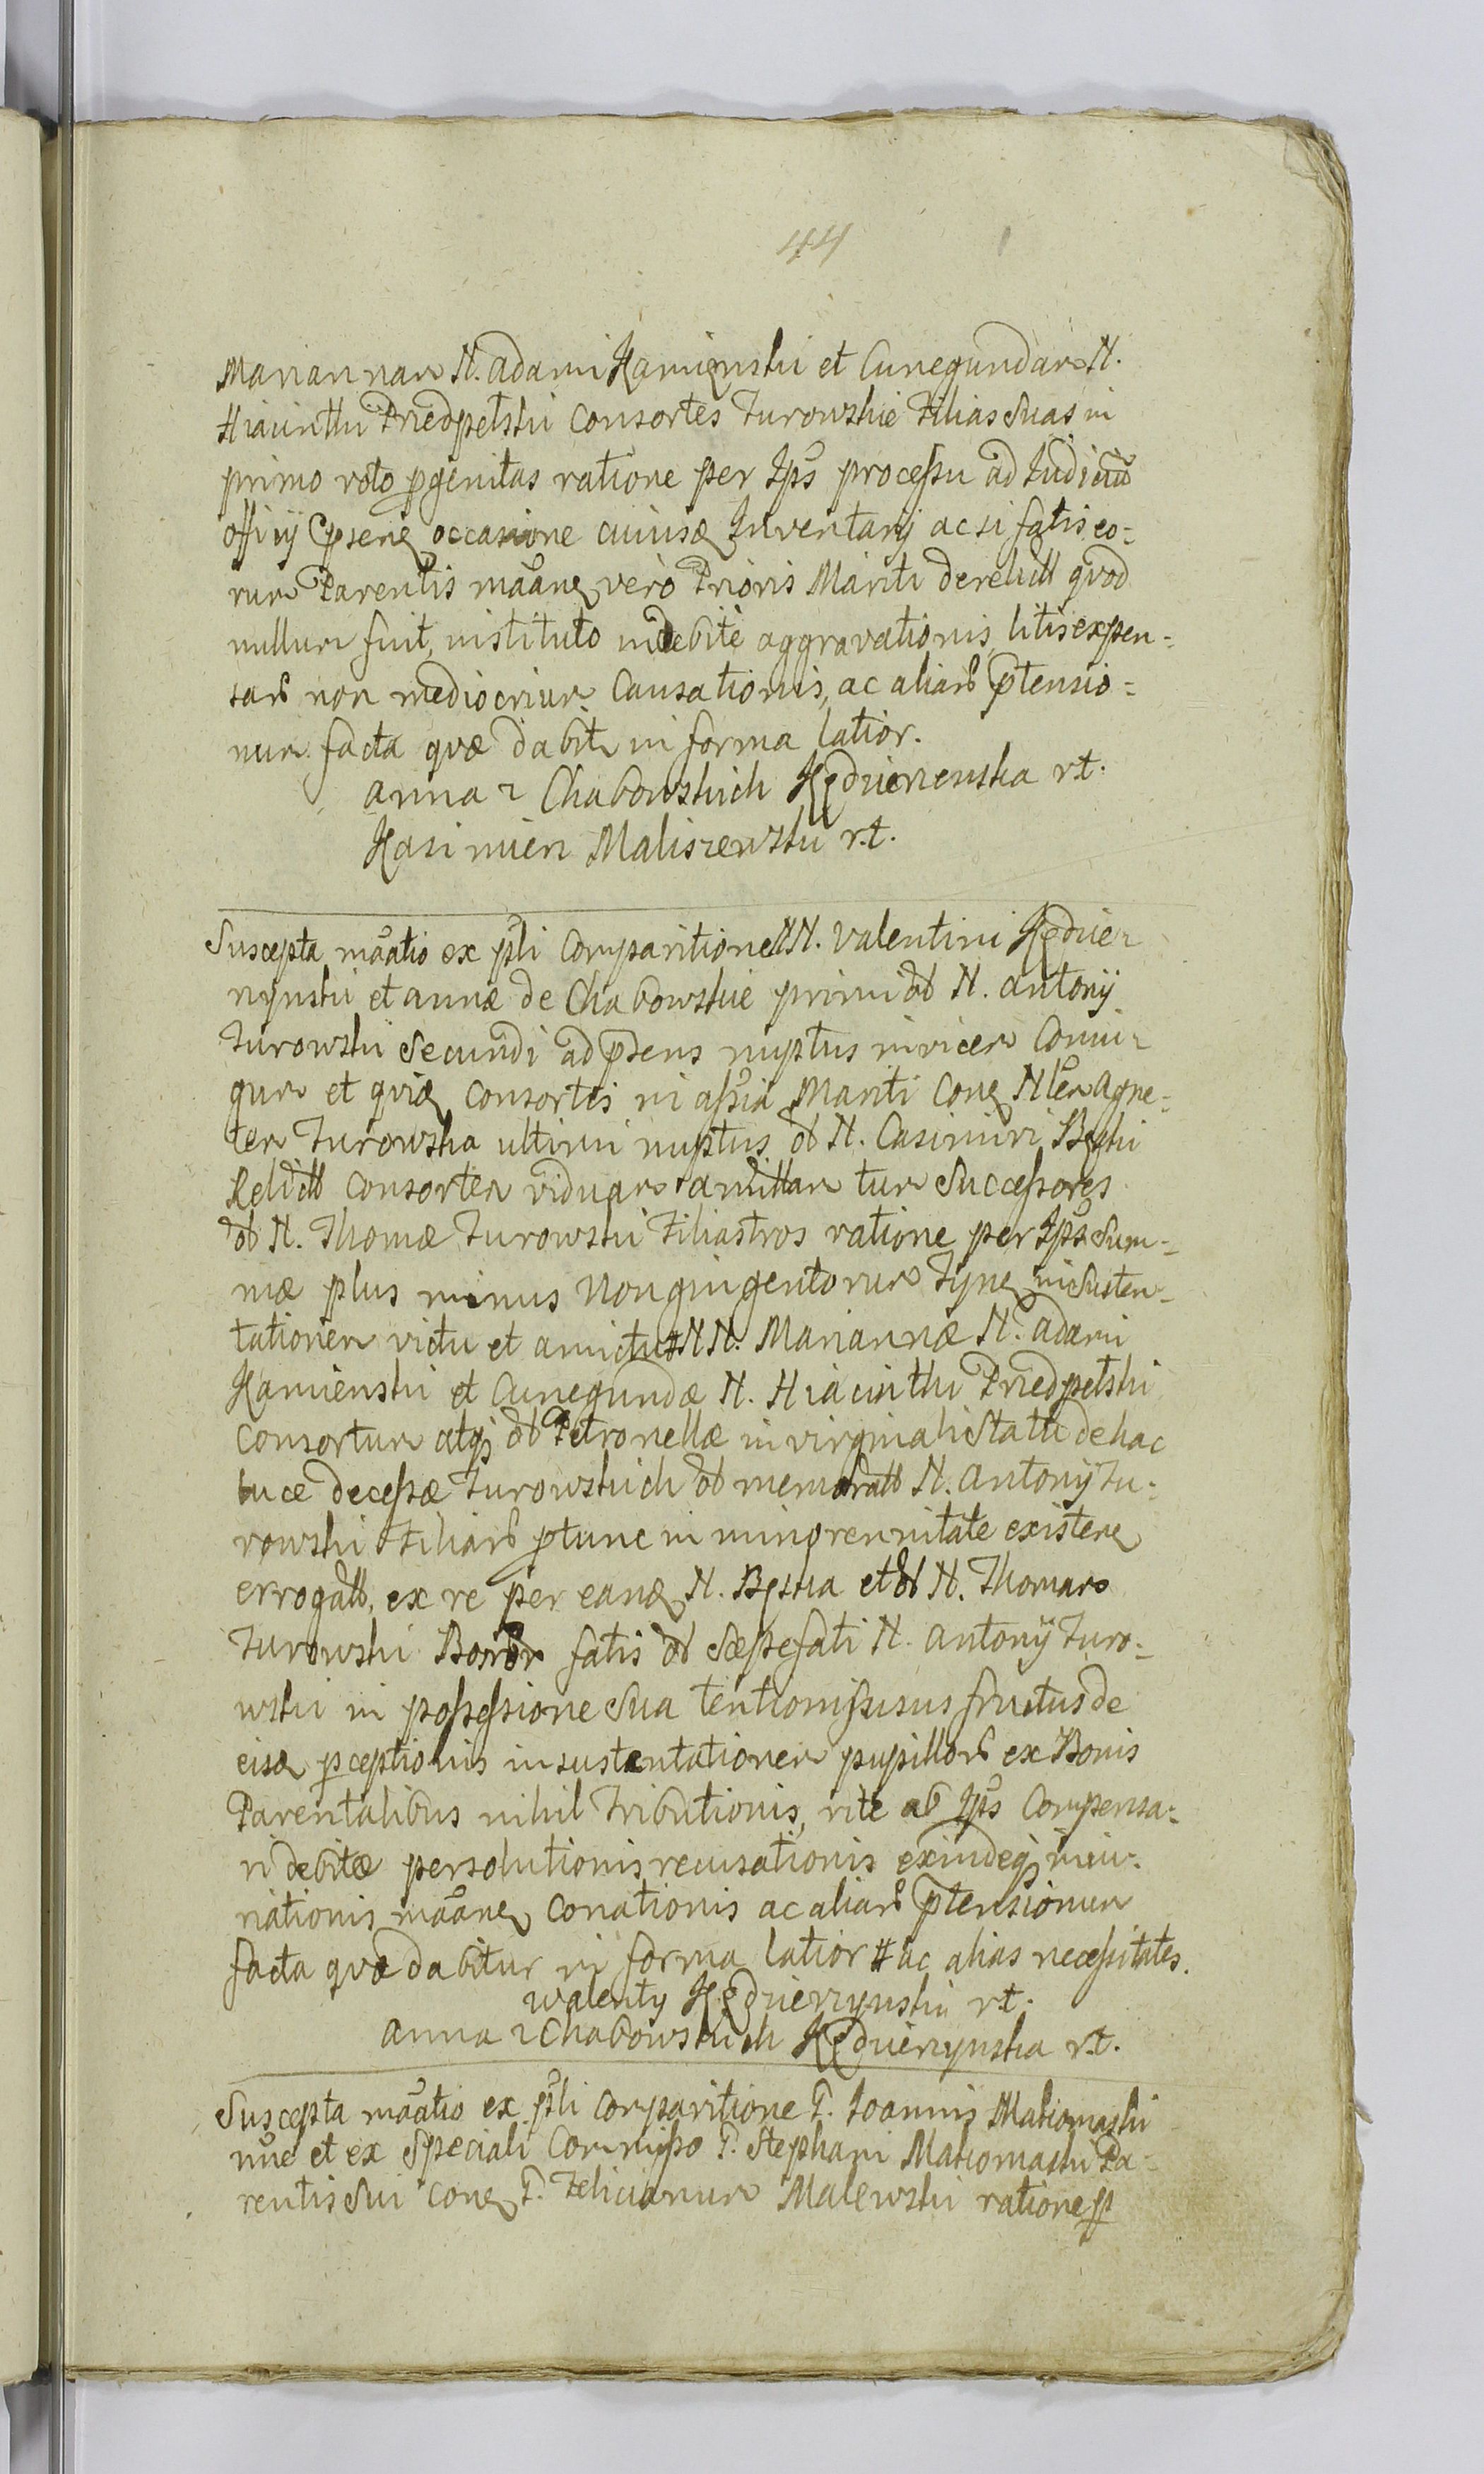 44
Mariannam N. Adami Kamienski et Cunegundam N.
Hiacinthi Przedpełski Consortes Turowskie Filias Suas in
primo voto pgenitas ratione per Ips processu ad Iudiciū
officij Cpsenę occasione cuiusę Inventarij ac si fatis eo=
rum Parentis māānę vero Prioris Mariti derelictt qvod
nullum fuit, instituto indebite aggravationis, litis expen=
sarb non mediocrium Causationis, ac aliarb ptensio=
num facta qvæ dabitr in forma latior.
Anna z Chabowskich Kędzierzenska r.t.
Kazimierz Maliszewski r.t.
Suscepta māātio ex pśli Comparitione NN. Valentini Kędzier=
zynski et Annæ de Chabowskie primi ob N. Antonij
Turowski Secundi ad pśens nuptus invicem Coniu=
gum et qvię Consortis in assiã Mariti Conę Nblem Agne=
tem Turowska ultimi nuptus ob N. Casimiri Bęski
Relictt Consortem viduam tum Successores
ob N. Thomæ Turowski Filiastros ratione per Ips Sum=
mæ plus minus Nongingentorum Tynę in Susten=
tationem victu et amictu # NN. Mariannæ N. Adami
Kamienski et Cunegundæ N. Hiacinthi Przedpełski
Consortum atqꝫ ob Petronellæ in virginali Statu de hac
luce decessæ Turowskich ob memoratt N. Antonij Tu=
rowski Filiarb ptunc in minorennitate existenę
errogatt, ex re per eanę N. Bęska et ob N. Thomam
Turowski Bonor fatis ob Sæpefati N. Antonij Turo=
wski in possessione Sua tentionis usus fructus de
eisę pceptionis in sustentationem pupillorb ex Bonis
Parentalibus nihil Tributionis, rite ab Ips Compensa=
ri debitæ persolutionis recusationis exindeqꝫ iniu=
riationis māānę Conationis ac aliarb ptensionum
facta qvæ dabitur in forma latior # ac alias necessitates.
Walenty Kędzierzynski r.t.
Anna z Chabowskich Kędzierzynska r.t.
Suscepta māātio ex pśli Comparitione G. Ioannis Makomaski
nūe et ex Speciali Commisso G. Stephani Makomaski Pa=
rentis Sui Conę G. Felicianum Malewski ratione p